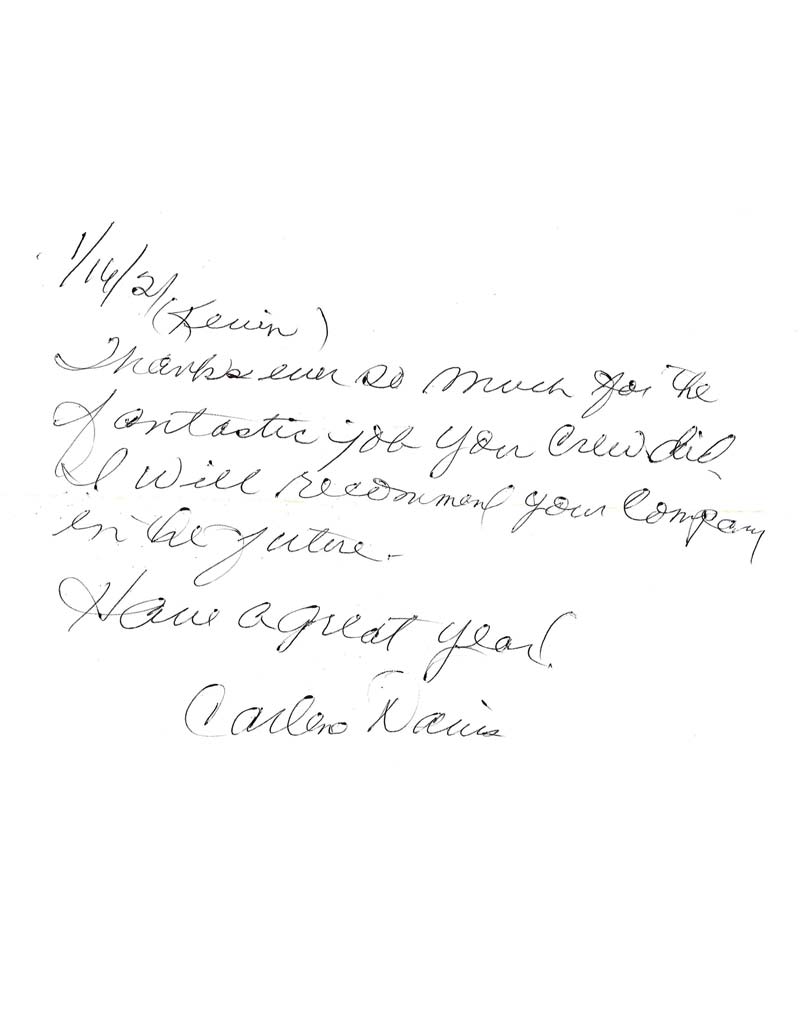 1/14/21
(Kevin)
Thanks ever so much for the
fantastic job your crew did.
I will recommend your Company
in the future.
Have a great year!
Davis